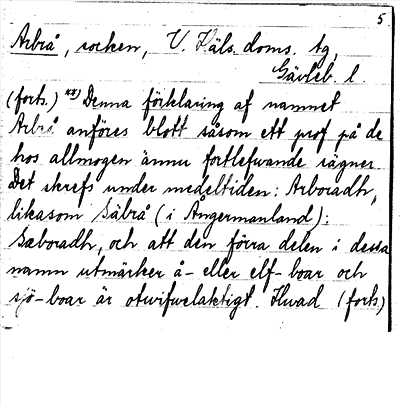 5
Arbrå, socken, V. Häls. doms. tg,
Gävleb. l.
(forts.) **) Denna förklaring af namnet
Arbrå anföres blott såsom ett prof på de
hos allmogen ännu fortlefwande sägner.
Det skrefs under medeltiden: Arboradh,
likasom Säbrå (i Ångermanland):
Sæboradh, och att den förra delen i dessa
namn utmärker å- eller elf-boar och
sjö-boar är otwifwelaktigt. Hwad (forts.)